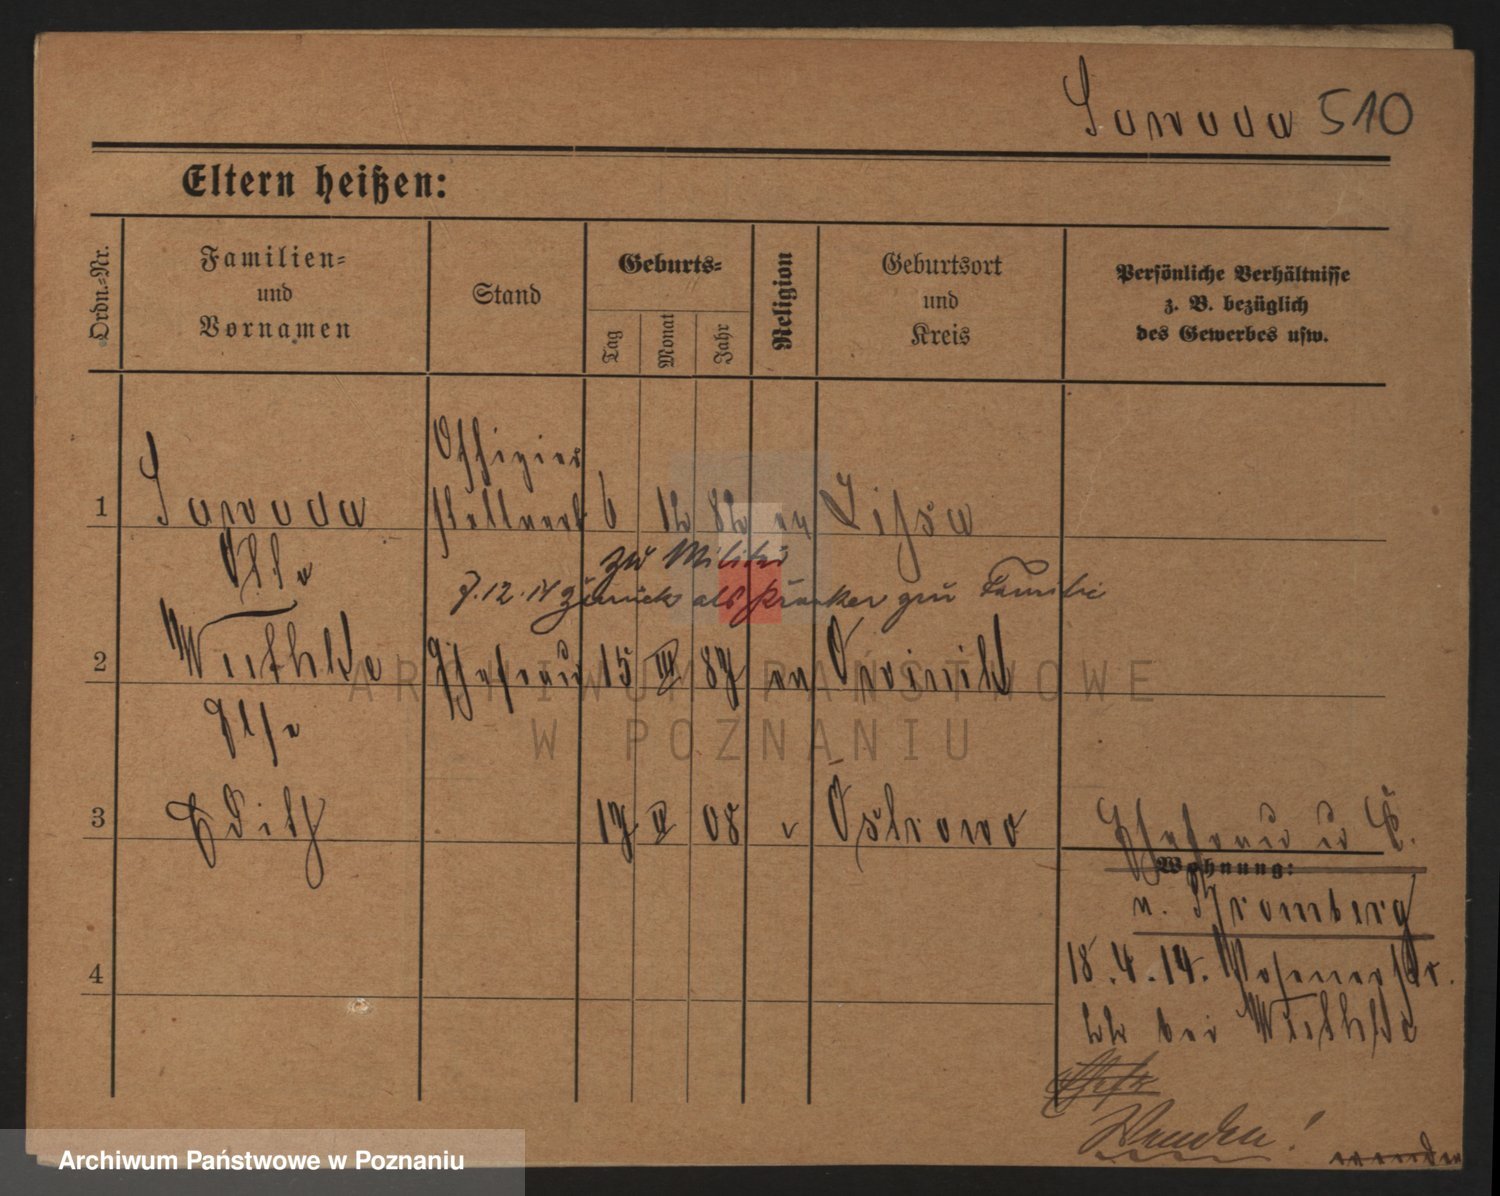 Sawada 510
Eltern heißen:
Ordn.-Nr.
Familien-
und
Vornamen
Stand
Geburts-
Tag
Monat
Jahr
Religion
Geburtsort
und
Kreis
Persönliche Verhältnisse
z. B. bezüglich
des Gewerbes usw.
Offizier
1 Sawada 6 12 82 ev Lissa
Otto
zu Militär
7.12.14 zurück als Kranker zur Familie
2 Ehefrau 15 III 87 ev
Else
3 Edith 17 08 Ostrowo
Ehefrau
Wohnung:
n. Bromberg
18.4.14. Posenerstr.
bei
4
Wenden!
wenden
ARCHIWUM PAŃSTWOWE
W POZNANIU
Archiwum Państwowe w Poznaniu